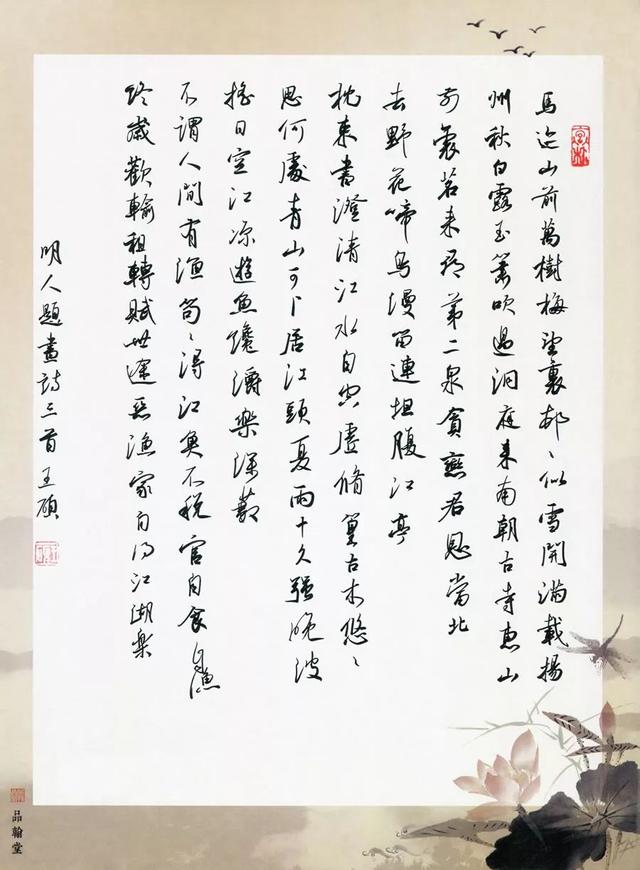 馬迹山前萬樹梅望裏邨〻似雪開滿載揚
州秋白露玉簫吹過洞庭來南朝古寺惠山
前裹茗來尋第二泉貪戀君恩當北
去野花啼鳥漫留連坦腹江亭
枕束書澄清江水自空虛脩篁古木悠〻
思何處青山可卜居江頭夏雨十久強晚波
搖日空江涼遊魚樂深藪
不謂人間有漁笱〻得江魚不稅官自食自漁
終歲歡輸租轉賦世途惡漁家自得江湖樂
明人題畫詩三首王碩
品翰堂